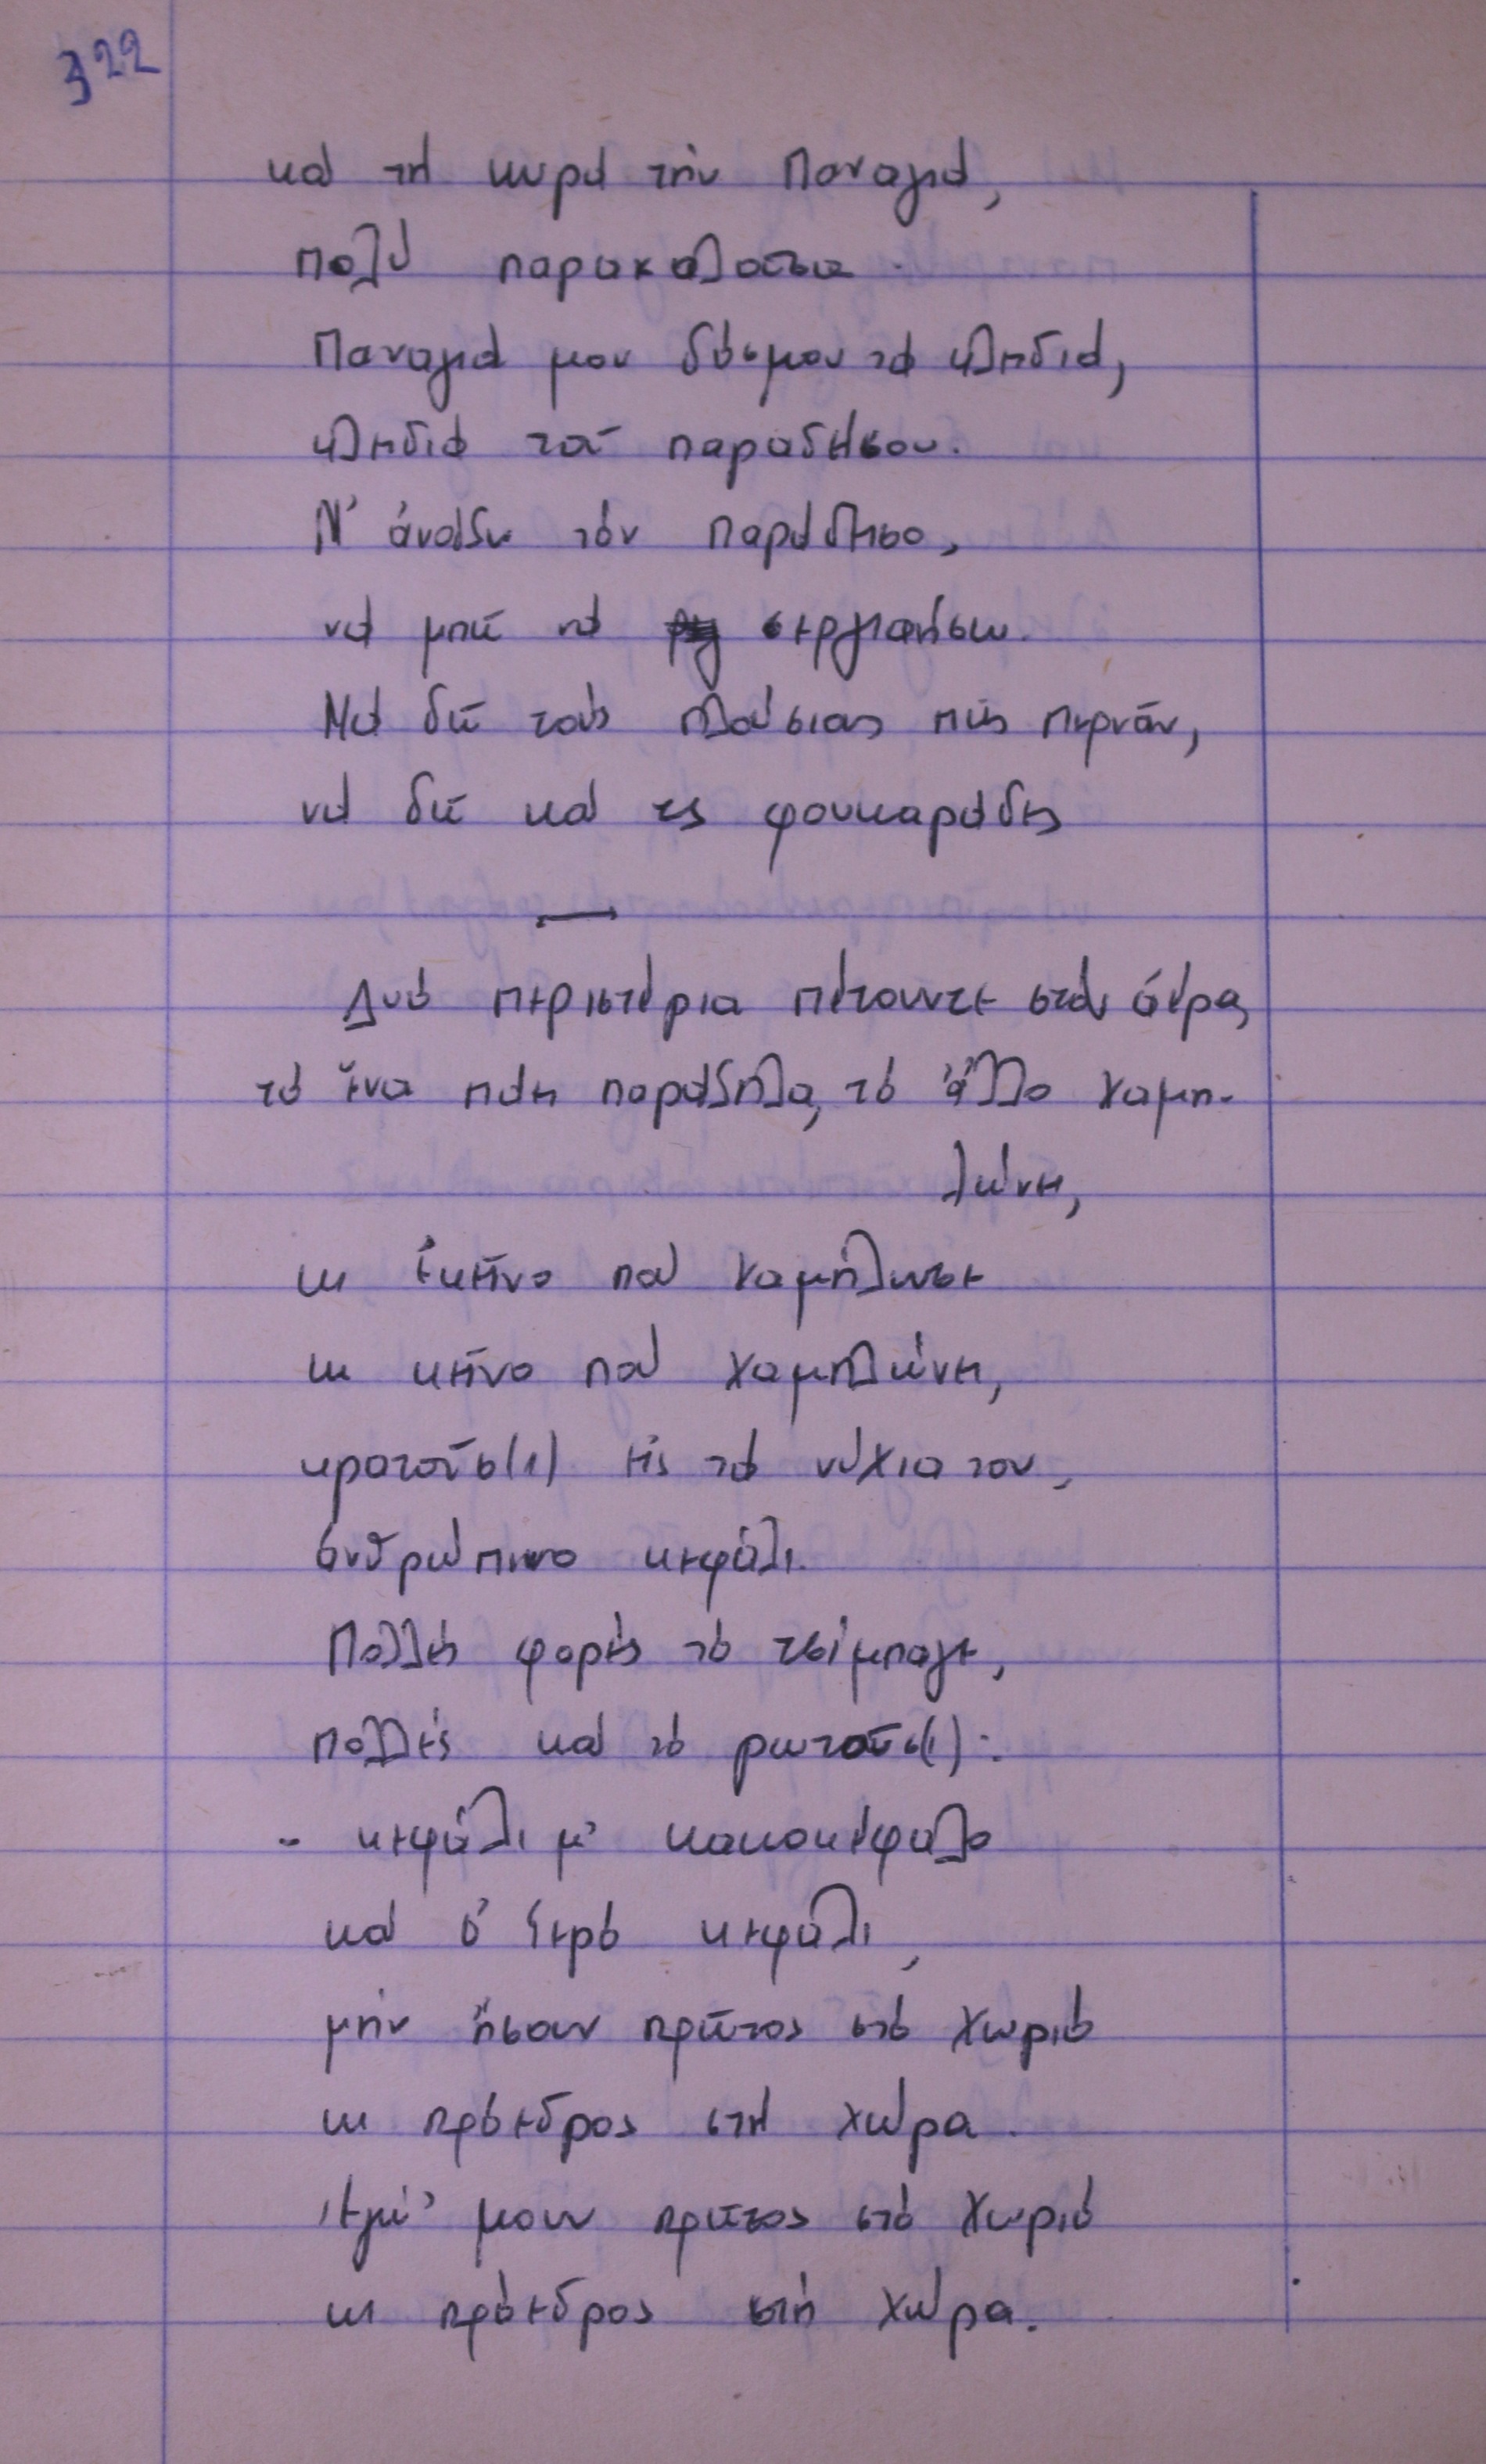 322
καὶ τὴ κυρὰ τὴν Παναγιά,
πολὺ παρακαλοῦσα.
Παναγιά μου δόσμου τὰ κλειδιά,
κλειδιὰ τοῦ παραδείσου.
Ν' ἀνοίξω τὸν παράδεισο,
νὰ μπῶ νὰ σεργιανήσω.
Νὰ δῶ τοὺς πλούσιους πῶς περνᾶν,
νὰ δῶ καὶ τς φουκαράδες
Δυὸ περιστέρια πέτουντε στὸν ἀέρα,
τὸ ἕνα πάει παράξηλα, τὸ ἄλλο χαμη-
λώνει,
κι ἐκεῖνο ποὺ χαμήλωσε
κι κεῖνο ποὺ χαμηλώνει,
κρατοῦσ(ι) εἰς τὰ νύχια του,
ἀνθρώπινο κεφάλι.
Πολλὲς φορὲς τὸ τσίμπαγε,
πολλὲς καὶ τὸ ρωτοῦσ(ι):
- κεφάλι μ' κακοκέφαλο
καὶ σ' ξερὸ κεφάλι,
μὴν ἤσουν πρῶτος στὸ χωριὸ
κι πρόεδρος στὴ χώρα.
Ἐγώ' μουν πρῶτος στὸ χωριὸ
κι πρόεδρος στὴ χώρα.